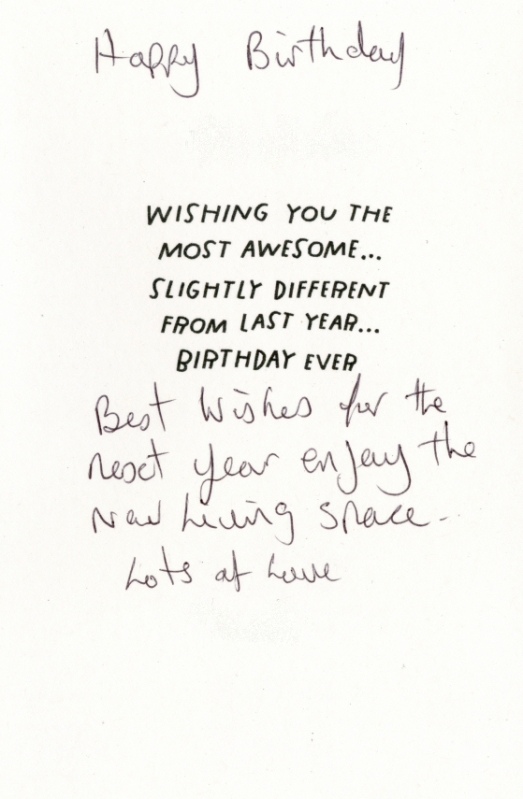 Happy Birthday
WISHING YOU THE
MOST AWESOME...
SLIGHTLY DIFFERENT
FROM LAST YEAR...
BIRTHDAY EVER
Best Wishes for the
next year enjoy the
New Living Space.
Lots of Love